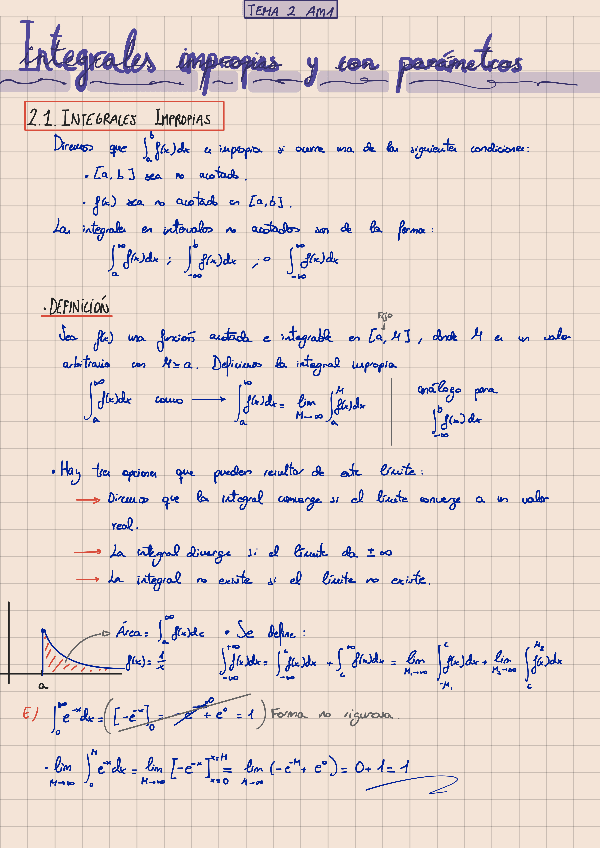 TEMA 2 AM1
Integrales impropias y con parámetros
2.1. INTEGRALES IMPROPIAS
Diremos que ∫_a^b f(x)dx es impropia si ocurre una de las siguientes condiciones:
· [a, b] sea no acotado.
· f(x) sea no acotado en [a, b].
Las integrales en intervalos no acotados son de la forma:
∫_a^∞ f(x)dx ; ∫_{-∞}^b f(x)dx , o ∫_{-∞}^∞ f(x)dx
· DEFINICIÓN
Fijo
Sea f(x) una función acotada e integrable en [a, M], donde M es un valor
arbitrario con M ≥ a. Definimos la integral impropia
∫_a^∞ f(x)dx como → ∫_a^∞ f(x)dx = lim_{M→∞} ∫_a^M f(x)dx
análogo para
∫_{-∞}^b f(x)dx
· Hay tres opciones que pueden resultar de este límite:
→ Diremos que la integral converge si el límite converge a un valor
real.
→ La integral diverge si el límite da ±∞
→ La integral no existe si el límite no existe.
Área = ∫_a^∞ f(x)dx
f(x) = 1/x
a
· Se define:
∫_{-∞}^{+∞} f(x)dx = ∫_{-∞}^c f(x)dx + ∫_c^∞ f(x)dx = lim_{M₁→∞} ∫_{-M₁}^c f(x)dx + lim_{M₂→∞} ∫_c^{M₂} f(x)dx
E) ∫_0^∞ e^{-x}dx = ([-e^{-x}]_0^∞ = -e^{-∞} + e^0 = 1) Forma no rigurosa.
· lim_{M→∞} ∫_0^M e^{-x}dx = lim_{M→∞} [-e^{-x}]_{x=0}^{x=M} = lim_{M→∞} (-e^{-M} + e^0) = 0 + 1 = 1